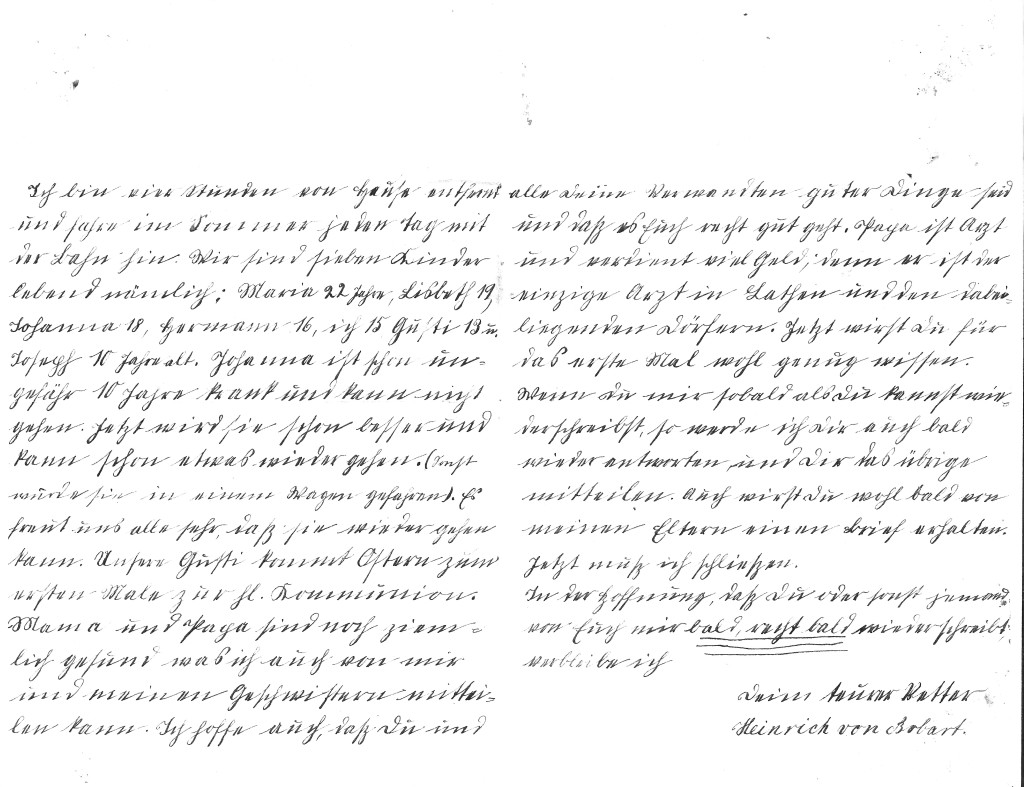 Ich bin vier Stunden von Hause entfernt
und fahre im Sommer jeden Tag mit
der Bahn hin. Wir sind sieben Kinder
lebend nämlich; Maria 22 Jahre, Lisbeth 19,
Johanna 18, Hermann 16, ich 15 Gusti 13 u.
Joseph 10 Jahre alt. Johanna ist schon un-
gefähr 10 Jahre krank und kann nicht
gehen. Jetzt wird sie schon besser und
kann schon etwas wieder gehen. (Sonst
wurde sie in einem Wagen gefahren). Es
freut uns alle sehr, daß sie wieder gehen
kann. Unsere Gusti kommt Ostern zum
ersten Male zur hl. Kommunion.
Mama und Papa sind noch ziem-
lich gesund was ich auch von mir
und meinen Geschwistern mittei-
len kann. Ich hoffe auch, daß Du und
alle Deine Verwandten guter Dinge seid
und daß es Euch recht gut geht. Papa ist Arzt
und verdient viel Geld; denn er ist der
einzige Arzt in Lathen und den dabei-
liegenden Dörfern. Jetzt wirst Du für
das erste Mal wohl genug wissen.
Wenn Du mir sobald als Du kannst wie-
derschreibst, so werde ich Dir auch bald
wieder antworten und Dir das übrige
mitteilen. Auch wirst Du wohl bald von
meinen Eltern einen Brief erhalten.
Jetzt muß ich schließen.
In der Hoffnung, daß Du oder sonst jemand
von Euch mir bald, recht bald wieder schreibt,
verbleibe ich
Dein teurer Vetter
Heinrich von Bobart.